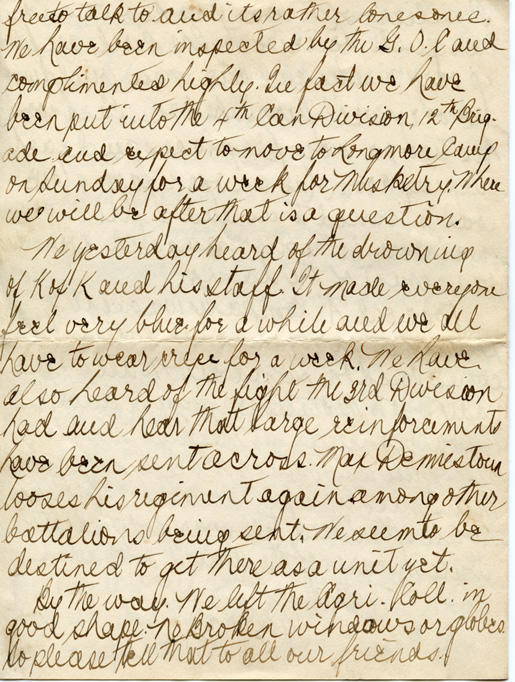 free to talk to and its rather lonesome.
We have been inspected by the G.O.C and
complimented highly. In fact we have
been put into the 4th Can Division, 12th Brig-
ade and expect to move to Longmore Camp
on Sunday for a week for Musketry. Where
we will be after that is a question.
We yesterday heard of the drowning
of K of K and his staff. It made everyone
feel very blue for a while and we all
have to wear crepe for a week. We have
also heard of the fight the 3rd Division
had and hear that large reinforcements
have been sent across. Max
looses his regiment again among other
battalions being sent. We seem to be
destined to get there as a unit yet.
By the way. We left the Agri. Koll. in
good shape. No Broken windows or globes
so please tell that to all our friends.